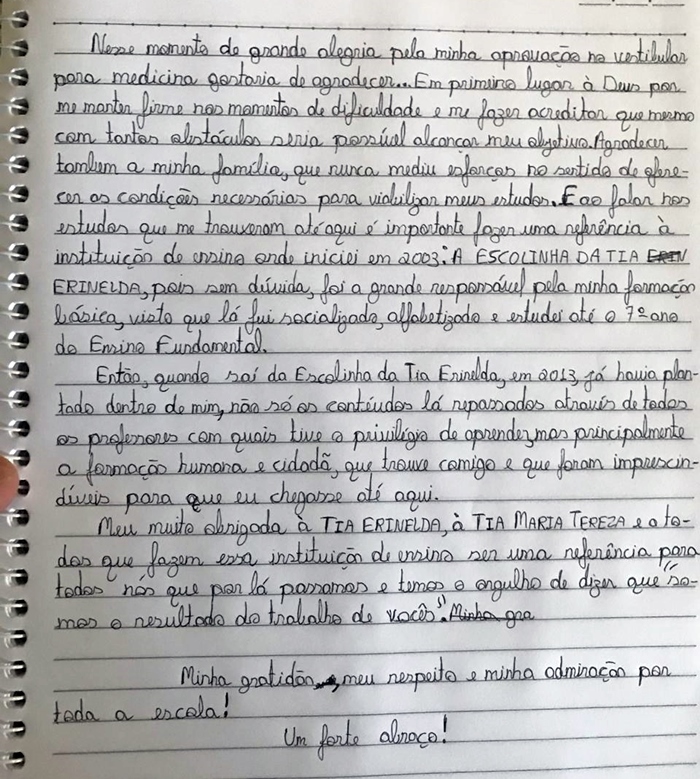 Nesse momento de grande alegria pela minha aprovação no vestibular
para medicina gostaria de agradecer... Em primeiro lugar à Deus por
me manter firme nos momentos de dificuldade e me fazer acreditar que mesmo
com tantos obstáculos seria possível alcançar meu objetivo. Agradecer
também a minha família, que nunca mediu esforços no sentido de ofere-
cer as condições necessárias para viabilizar meus estudos. E ao falar nos
estudos que me trouxeram até aqui é importante fazer uma referência à
instituição de ensino onde iniciei em 2003: A ESCOLINHA DA TIA ERIN
ERINELDA, pois sem dúvida, foi a grande responsável pela minha formação
básica, visto que lá fui socializado, alfabetizado e estudei até o 7º ano
do Ensino Fundamental.
Então, quando saí da Escolinha da Tia Erinelda, em 2013, já havia plan-
tado dentro de mim, não só os contéudos lá repassados através de todos
os professores com quais tive o privilégio de aprender, mas principalmente
a formação humana e cidadã, que trouxe comigo e que foram imprescin-
díveis para que eu chegasse até aqui.
Meu muito obrigada à TIA ERINELDA, à TIA MARIA TEREZA e a to-
dos que fazem essa instituição de ensino ser uma referência para
todos nós que por lá passamos e temos o orgulho de dizer que "so-
mos o resultado do trabalho de vocês". Minha gra
Minha gratidão, meu respeito e minha admiração por
toda a escola!
Um forte abraço!